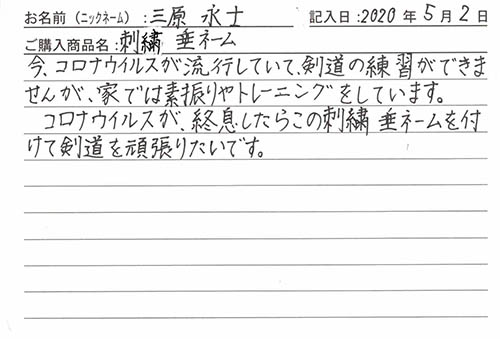 お名前(ニックネーム):三原 永士 記入日:2020年5月2日
ご購入商品名:刺繍 垂ネーム
今、コロナウイルスが流行していて、剣道の練習ができま
せんが、家では素振りやトレーニングをしています。
コロナウイルスが、終息したらこの刺繍 垂ネームを付
けて剣道を頑張りたいです。